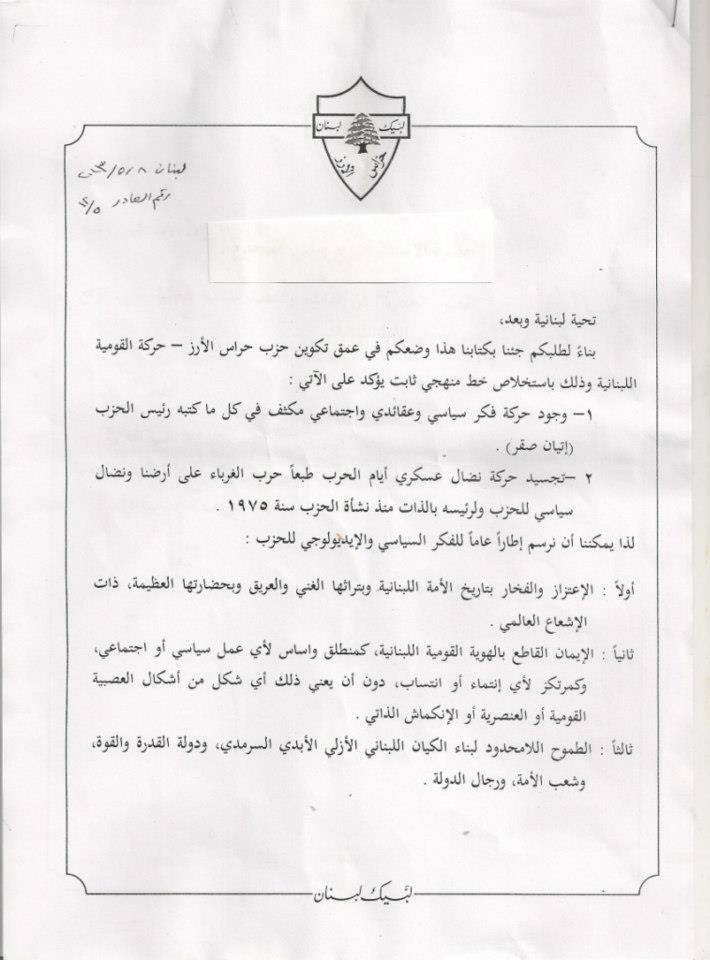 لبّيك لبنان
حرّاس الأرز
لبنان
رقم الصادر
تحية لبنانية وبعد،
بناءً لطلبكم جئنا بكتابنا هذا وضعكم في عمق تكوين حزب حراس الأرز – حركة القومية
اللبنانية وذلك باستخلاص خط منهجي ثابت يؤكد على الآتي :
١– وجود حركة فكر سياسي وعقائدي واجتماعي مكثف في كل ما كتبه رئيس الحزب
(إتيان صقر) .
٢ –تجسيد حركة نضال عسكري أيام الحرب طبعاً حرب الغرباء على أرضنا ونضال
سياسي للحزب ولرئيسه بالذات منذ نشأة الحزب سنة ١٩٧٥ .
لذا يمكننا أن نرسم إطاراً عاماً للفكر السياسي والإيديولوجي للحزب :
أولاً : الإعتزاز والفخار بتاريخ الأمة اللبنانية وبتراثها الغني والعريق وبحضارتها العظيمة، ذات
الإشعاع العالمي .
ثانياً : الإيمان القاطع بالهوية القومية اللبنانية، كمنطلق واساس لأي عمل سياسي أو اجتماعي،
وكمرتكز لأي إنتماء أو انتساب، دون أن يعني ذلك أي شكل من أشكال العصبية
القومية أو العنصرية أو الإنكماش الذاتي .
ثالثاً : الطموح اللامحدود لبناء الكيان اللبناني الأزلي الأبدي السرمدي، ودولة القدرة والقوة،
وشعب الأمة، ورجال الدولة .
لبّيك لبنان